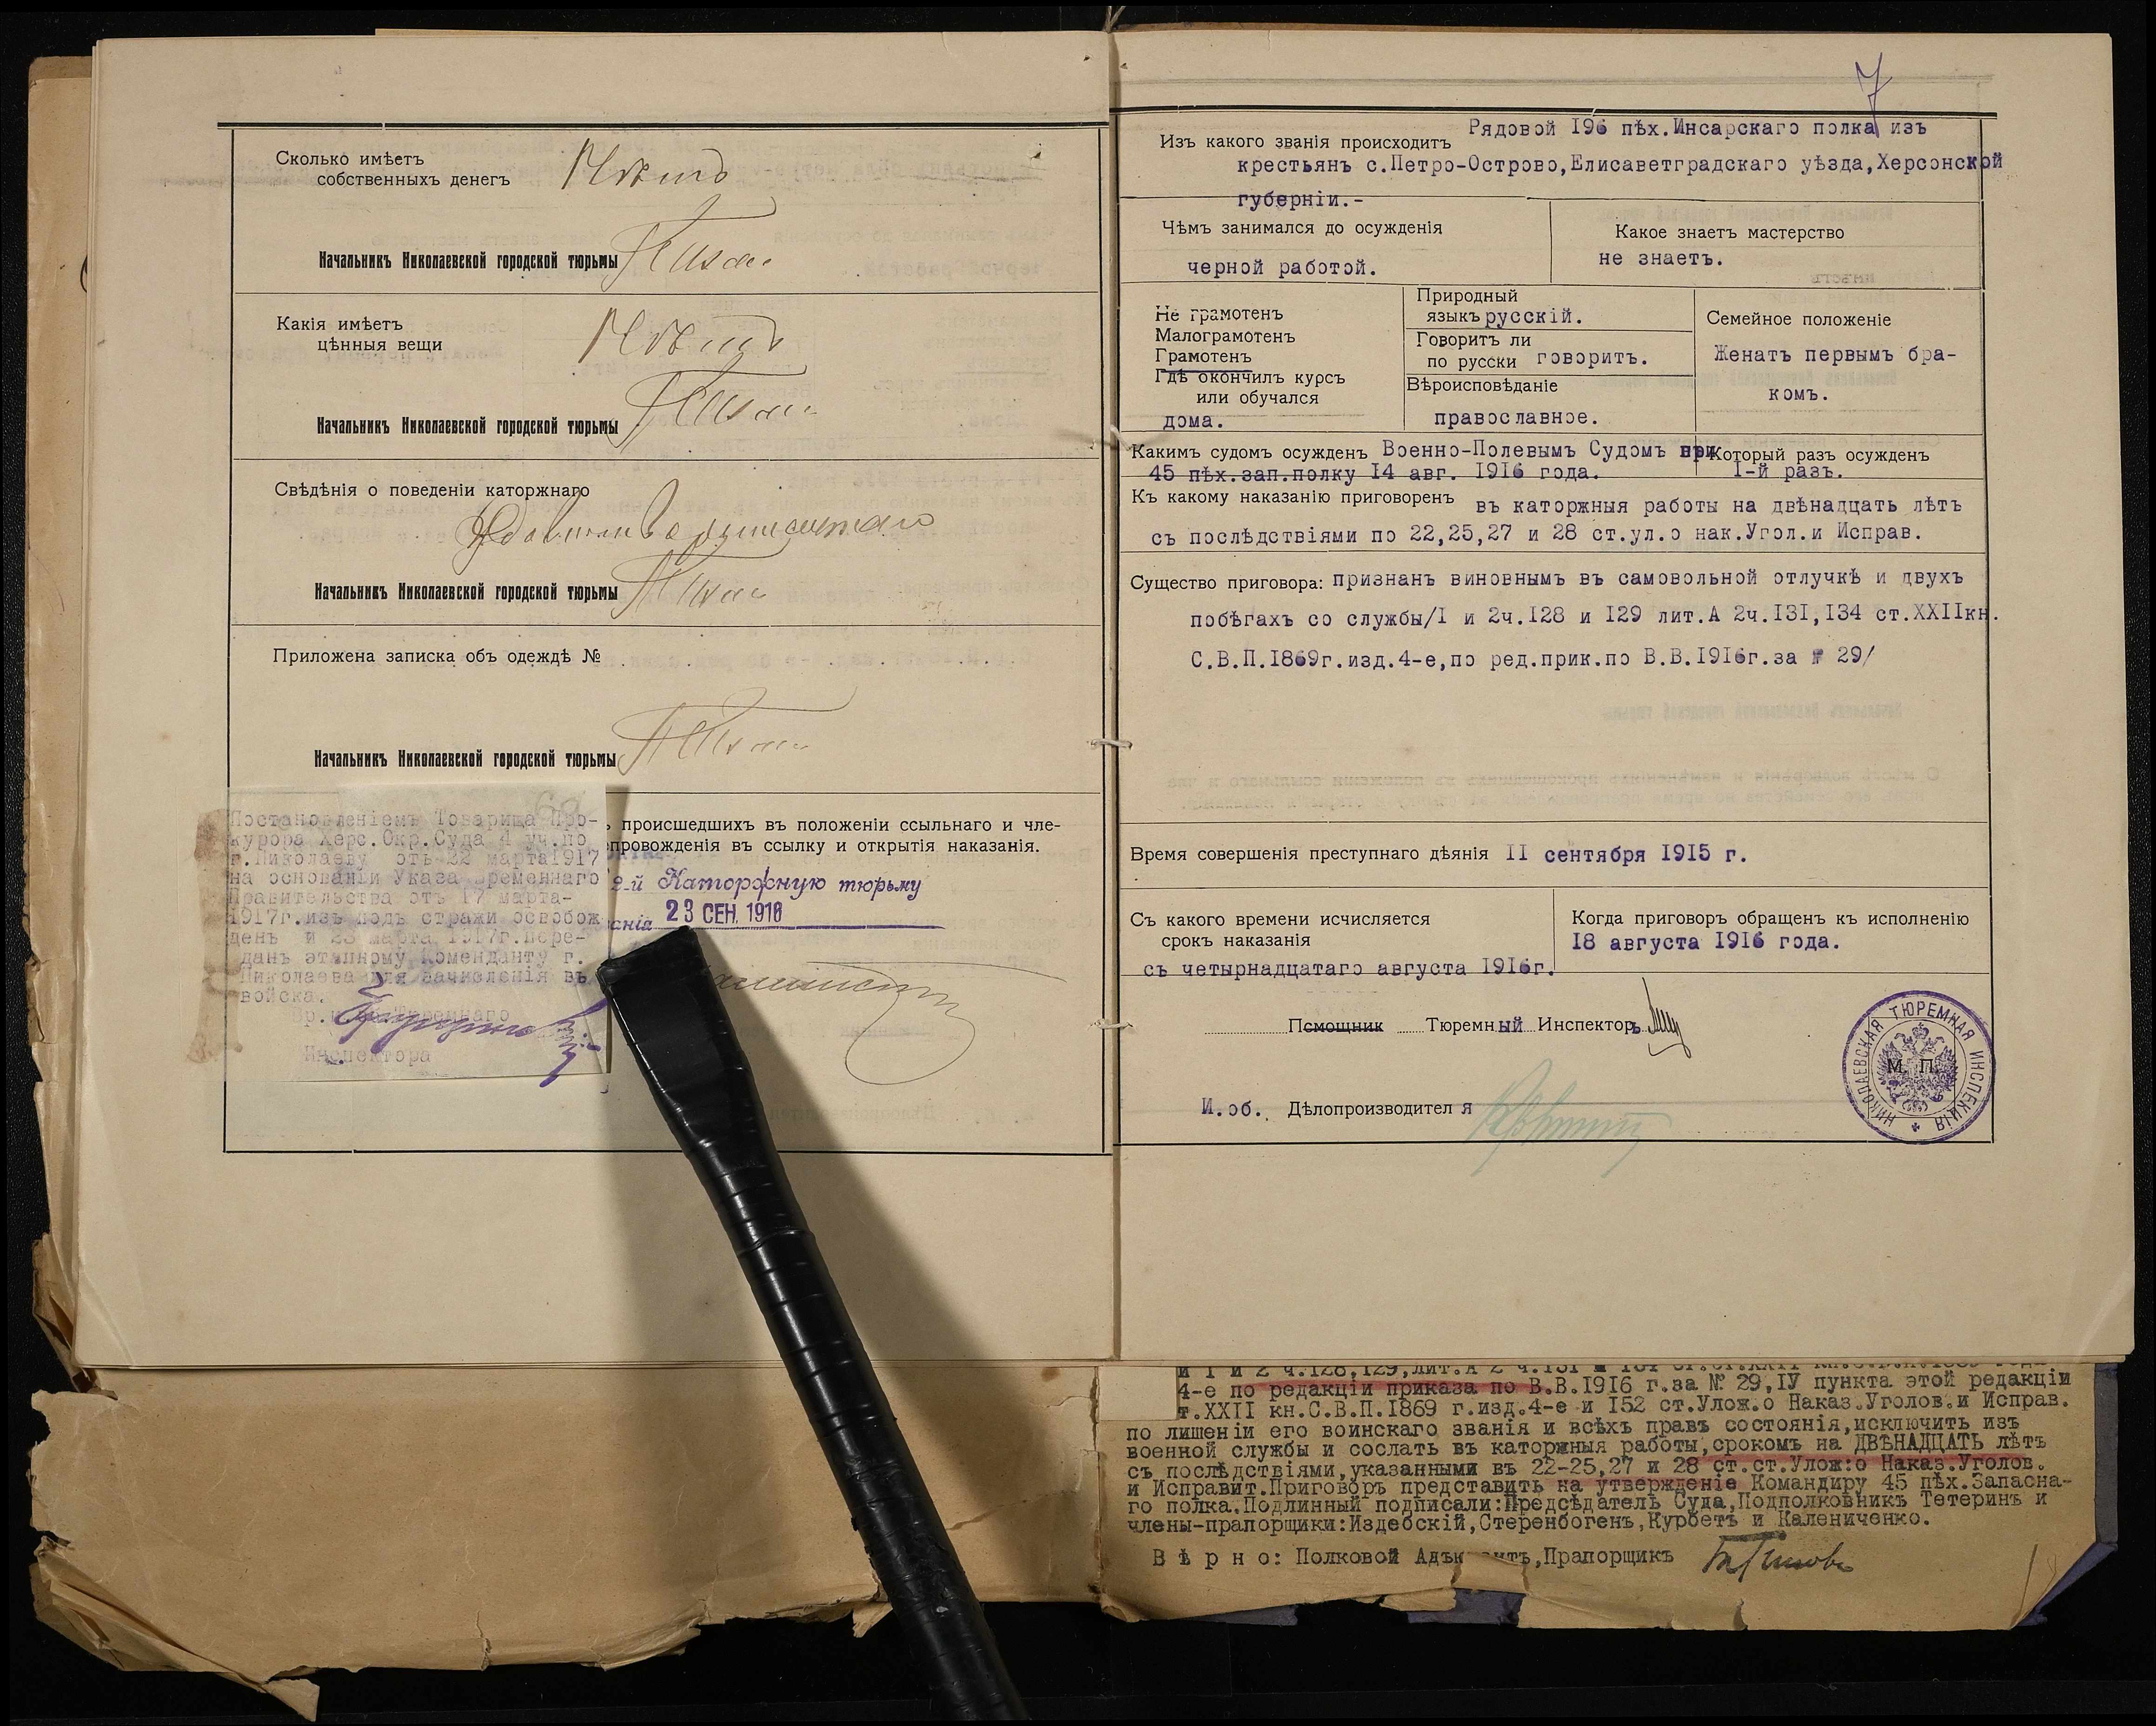 Сколько имѣетъ
собственныхъ денегъ Нѣтъ
Начальникъ Николаевской городской тюрьмы
Какія имѣетъ
цѣнныя вещи Нѣтъ
Начальникъ Николаевской городской тюрьмы
Свѣдѣнія о поведеніи каторжнаго
Начальникъ Николаевской городской тюрьмы
Приложена записка объ одеждѣ №
Начальникъ Николаевской городской тюрьмы
происшедшихъ въ положеніи ссыльнаго и чле-
провожденія въ ссылку и открытія наказанія.
2-й Каторжную тюрьму
23 СЕН. 1916
Постановленіемъ Товарища Про-
курора Херс.Окр.Суда 4 уч.по
г.Николаеву отъ 22 марта1917
на основаніи Указа Временнаго
Правительства отъ 17 марта-
1917г.изъ подъ стражи освобож
денъ и 23 марта 1917г.пере-
данъ этапному Коменданту г.
Николаева для зачисленія въ
войска.
Тюремнаго
Инспектора
7
Изъ какого званія происходитъ Рядовой 196 пѣх.Инсарскаго полка изъ
крестьянъ с.Петро-Острово,Елисаветградскаго уѣзда,Херсонской
губерніи.-
Чѣмъ занимался до осужденія
черной работой.
Какое знаетъ мастерство
не знаетъ.
Не грамотенъ
Малограмотенъ
Грамотенъ
Гдѣ окончилъ курсъ
или обучался
дома.
Природный
языкъ русскій.
Говоритъ ли
по русски говоритъ.
Вѣроисповѣданіе
православное.
Семейное положеніе
Женатъ первымъ бра-
комъ.
Какимъ судомъ осужденъ Военно-Полевымъ Судомъ при
45 пѣх.зап.полку 14 авг. 1916 года.
Который разъ осужденъ
1-й разъ.
Къ какому наказанію приговоренъ въ каторжныя работы на двѣнадцать лѣтъ
съ послѣдствіями по 22,25,27 и 28 ст.ул.о нак.Угол.и Исправ.
Существо приговора: признанъ виновнымъ въ самовольной отлучкѣ и двухъ
побѣгахъ со службы/I и 2ч.128 и 129 лит.А 2ч.131,134 ст.XXIIкн.
С.В.П.1869г.изд.4-е,по ред.прик.по В.В.1916г.за № 29/
Время совершенія преступнаго дѣянія 11 сентября 1915 г.
Съ какого времени исчисляется
срокъ наказанія
съ четырнадцатаго августа 1916г.
Когда приговоръ обращенъ къ исполненію
18 августа 1916 года.
Помощникъ Тюремный Инспекторъ
НИКОЛАЕВСКАЯ ТЮРЕМНАЯ ИНСПЕКЦІЯ
М. П.
И.об. Дѣлопроизводителя
4-е по редакціи приказа по В.В.1916 г.за № 29,IУ пункта этой редакціи
т.XXII кн.С.В.П.1869 г.изд.4-е и 152 ст.Улож.о Наказ.Уголов.и Исправ.
по лишеніи его воинскаго званія и всѣхъ правъ состоянія,исключить изъ
военной службы и сослать въ каторжныя работы,срокомъ на ДВѢНАДЦАТЬ лѣтъ
съ послѣдствіями,указанными въ 22-25,27 и 28 ст.ст.Улож:о Наказ.Уголов.
и Исправит.Приговоръ представить на утвержденіе Командиру 45 пѣх.Запасна-
го полка.Подлинный подписали:Предсѣдатель Суда,Подполковникъ Тетеринъ и
члены-прапорщики:Издебскій,Стеренбогенъ,Курбетъ и Калениченко.
Вѣрно: Полковой Адъютантъ,Прапорщикъ